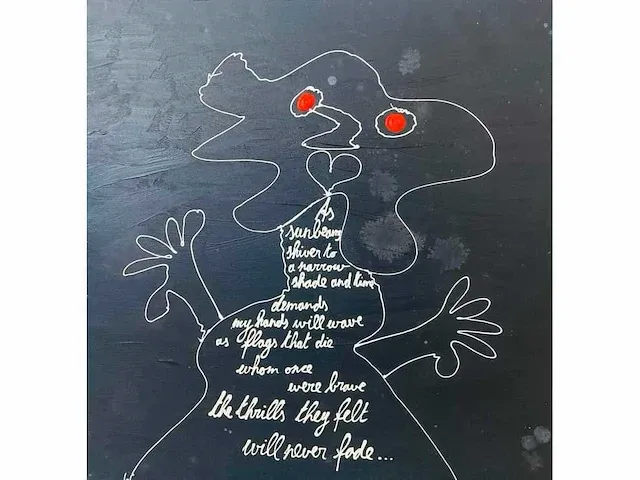 As
sunbeams
shiver to
a narrow
shade and time
demands
my hands will wave
as flags that die
whom once
were brave
the thrills they felt
will never fade...